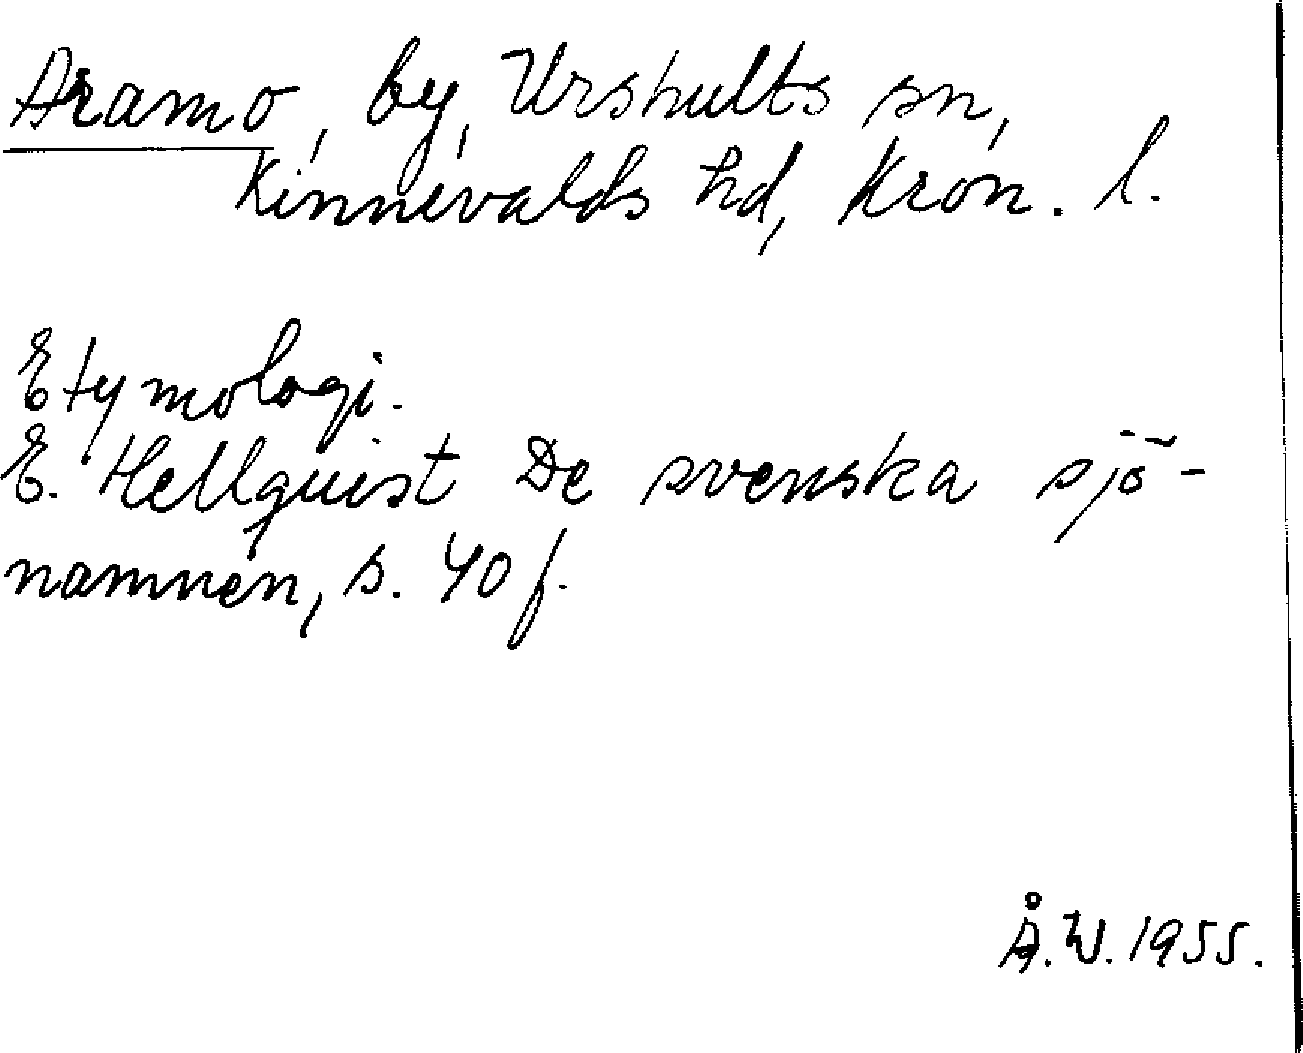 Aramo, by, Urshults sn,
Kinnevalds hd, Kron. l.
Etymologi.
E. Hellquist De svenska sjö-
namnen, s. 40 f.
Å.W. 1955.